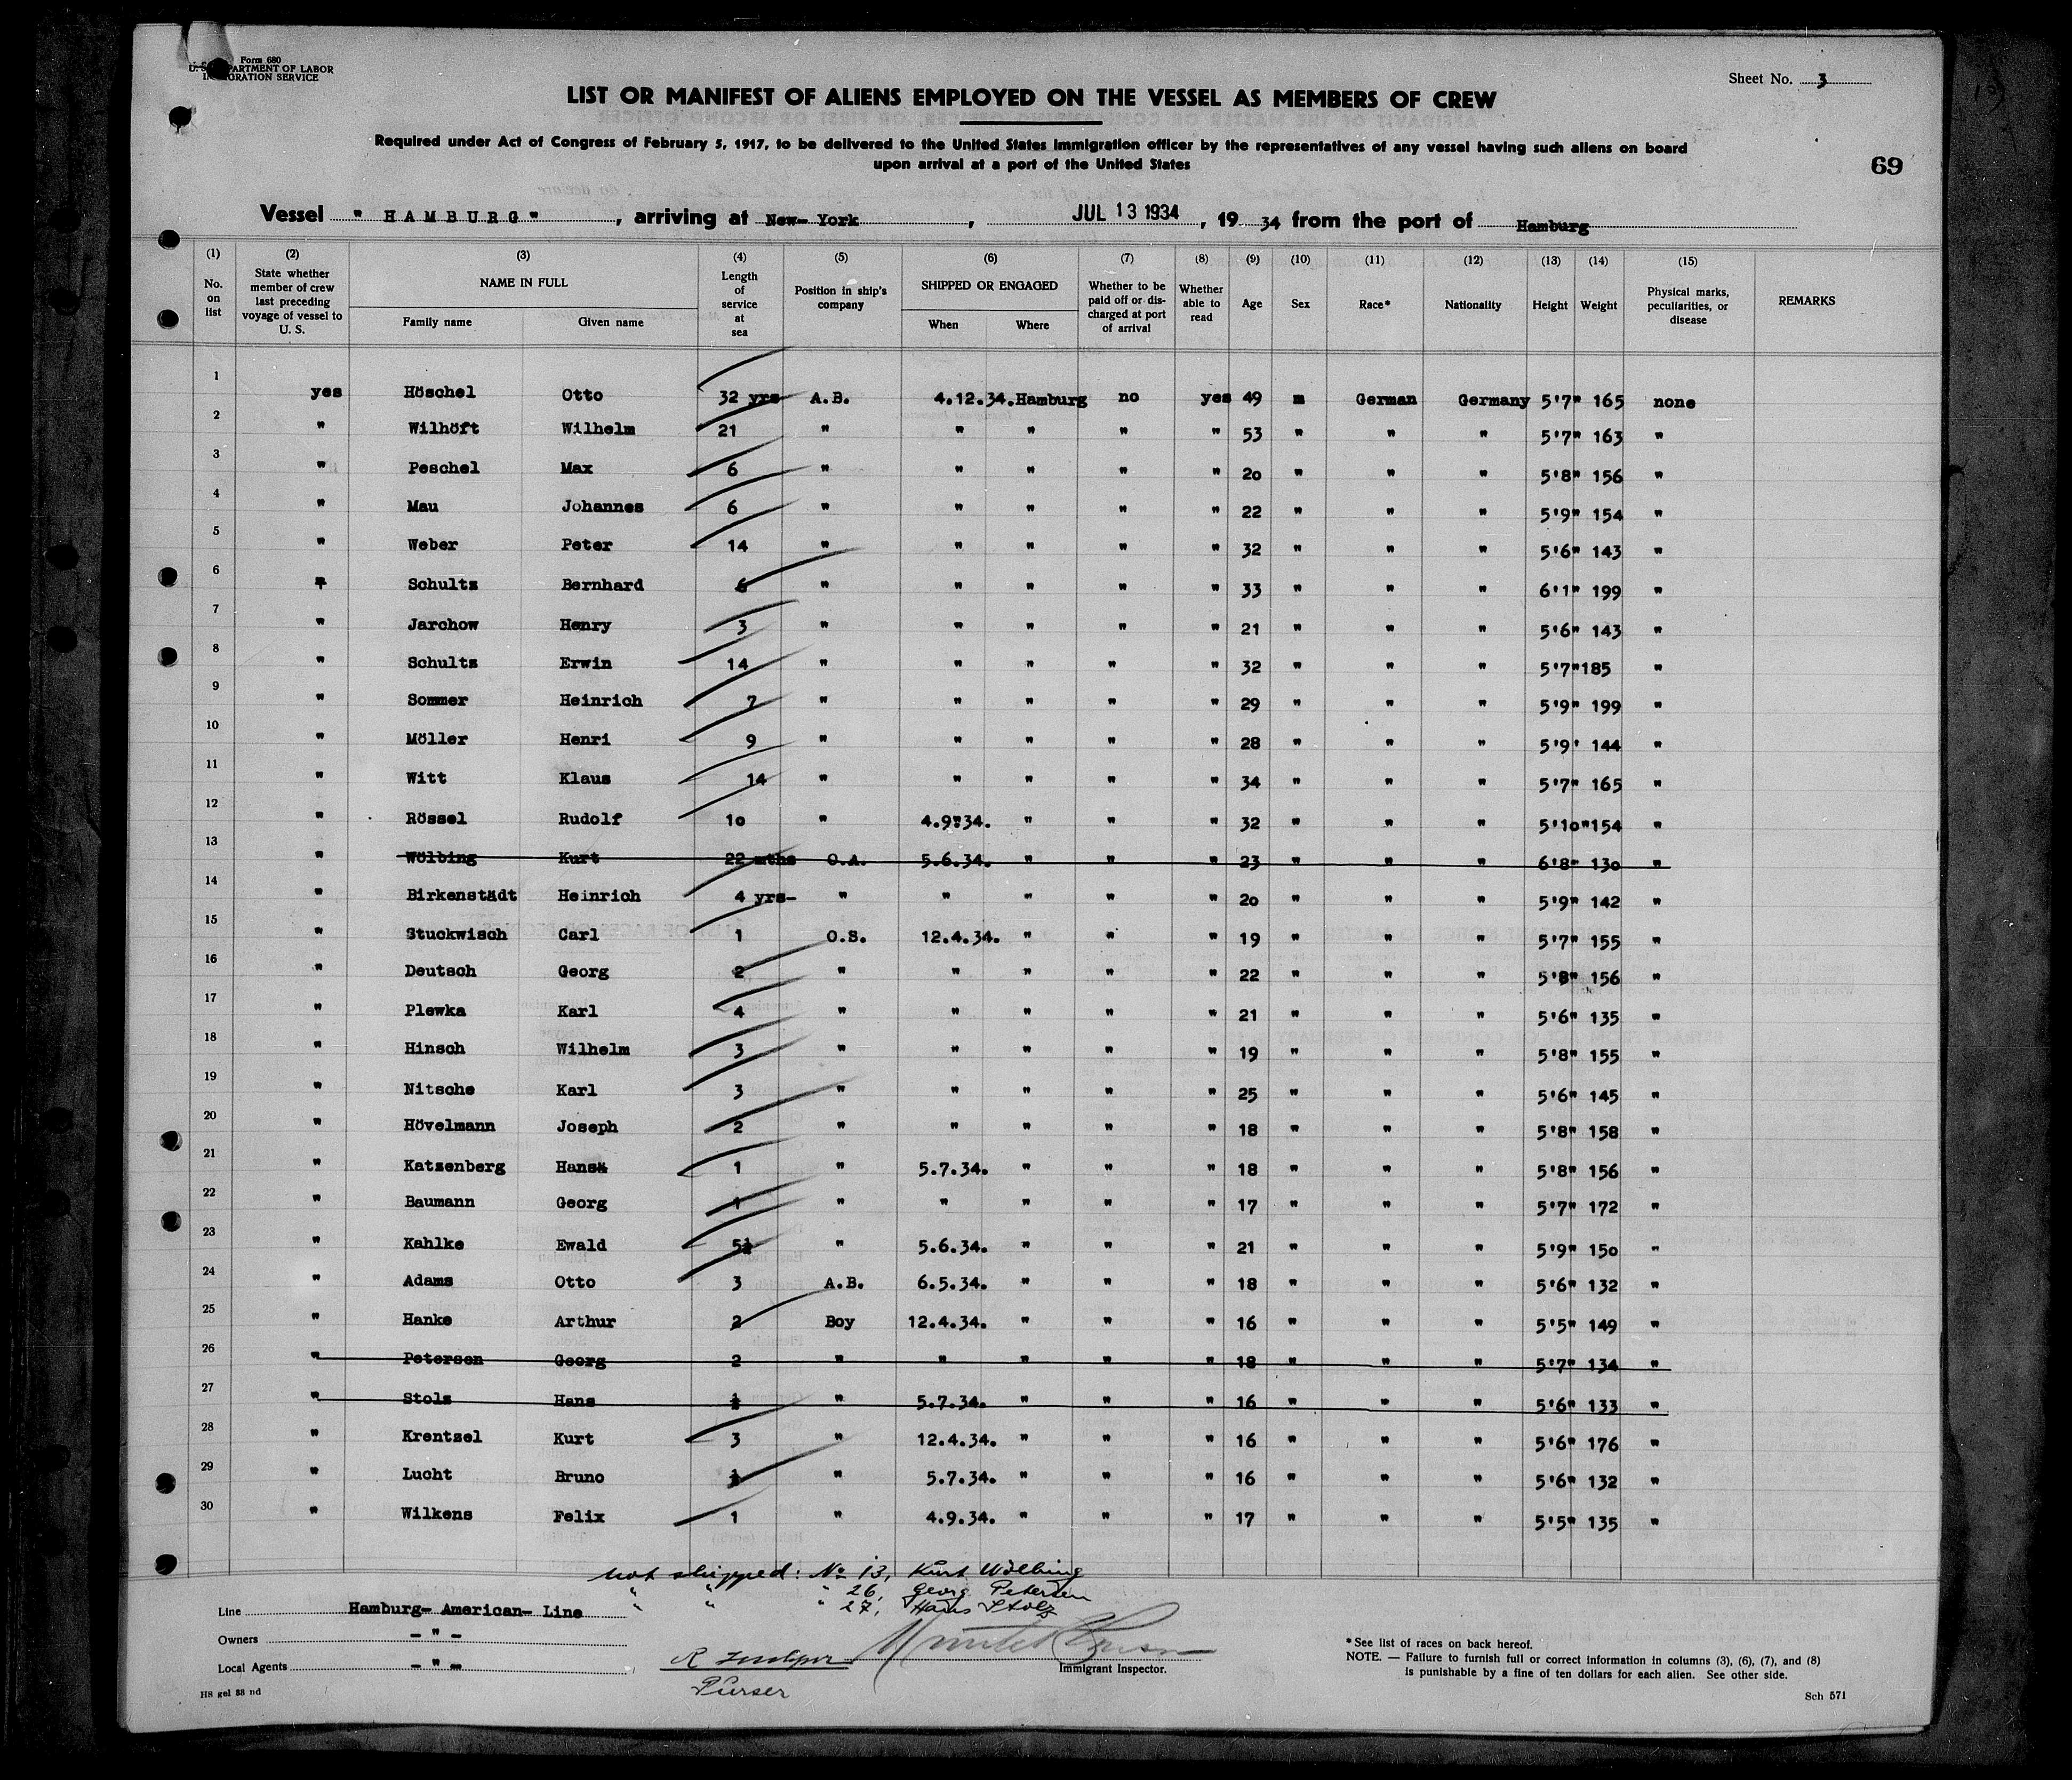 Form 680
U. S. DEPARTMENT OF LABOR
IMMIGRATION SERVICE
Sheet No. 3
LIST OR MANIFEST OF ALIENS EMPLOYED ON THE VESSEL AS MEMBERS OF CREW
Required under Act of Congress of February 5, 1917, to be delivered to the United States immigration officer by the representatives of any vessel having such aliens on board
upon arrival at a port of the United States
69
Vessel "HAMBURG", arriving at New-York, JUL 13 1934, 1934 from the port of Hamburg
(1) (2) (3) (4) (5) (6) (7) (8) (9) (10) (11) (12) (13) (14) (15)
No. on list State whether member of crew last preceding voyage of vessel to U. S. NAME IN FULL Family name Given name Length of service at sea Position in ship's company SHIPPED OR ENGAGED When Where Whether to be paid off or discharged at port of arrival Whether able to read Age Sex Race* Nationality Height Weight Physical marks, peculiarities, or disease REMARKS
1 yes Höschel Otto 32 yrs A.B. 4.12.34. Hamburg no yes 49 m German Germany 5'7" 165 none
2 " Wilhöft Wilhelm 21 " " " " " 53 " " " 5'7" 163 "
3 " Peschel Max 6 " " " " " 20 " " " 5'8" 156 "
4 " Mau Johannes 6 " " " " " 22 " " " 5'9" 154 "
5 " Weber Peter 14 " " " " " 32 " " " 5'6" 143 "
6 " Schultz Bernhard 6 " " " " " 33 " " " 6'1" 199 "
7 " Jarchow Henry 3 " " " " " 21 " " " 5'6" 143 "
8 " Schultz Erwin 14 " " " " " 32 " " " 5'7" 185 "
9 " Sommer Heinrich 7 " " " " " 29 " " " 5'9" 199 "
10 " Möller Henri 9 " " " " " 28 " " " 5'9' 144 "
11 " Witt Klaus 14 " " " " " 34 " " " 5'7" 165 "
12 " Rössel Rudolf 10 " 4.9.34. " " " 32 " " " 5'10" 154 "
13 " Wölbing Kurt 22 mths O.A. 5.6.34. " " " 23 " " " 6'8" 130 "
14 " Birkenstädt Heinrich 4 yrs- " " " " " 20 " " " 5'9" 142 "
15 " Stuckwisch Carl 1 O.S. 12.4.34. " " " 19 " " " 5'7" 155 "
16 " Deutsch Georg 2 " " " " " 22 " " " 5'8" 156 "
17 " Plewka Karl 4 " " " " " 21 " " " 5'6" 135 "
18 " Hinsch Wilhelm 3 " " " " " 19 " " " 5'8" 155 "
19 " Nitsche Karl 3 " " " " " 25 " " " 5'6" 145 "
20 " Hövelmann Joseph 2 " " " " " 18 " " " 5'8" 158 "
21 " Katzenberg Hans 1 " 5.7.34. " " " 18 " " " 5'8" 156 "
22 " Baumann Georg 1 " " " " " 17 " " " 5'7" 172 "
23 " Kahlke Ewald 5½ " 5.6.34. " " " 21 " " " 5'9" 150 "
24 " Adams Otto 3 A.B. 6.5.34. " " " 18 " " " 5'6" 132 "
25 " Hanke Arthur 2 Boy 12.4.34. " " " 16 " " " 5'5" 149 "
26 " Petersen Georg 2 " " " " " 18 " " " 5'7" 134 "
27 " Stolz Hans ½ " 5.7.34. " " " 16 " " " 5'6" 133 "
28 " Krentzel Kurt 3 " 12.4.34. " " " 16 " " " 5'6" 176 "
29 " Lucht Bruno ½ " 5.7.34. " " " 16 " " " 5'6" 132 "
30 " Wilkens Felix 1 " 4.9.34. " " " 17 " " " 5'5" 135 "
not shipped: No 13, Kurt Wölbing
" " " 26, Georg Petersen
" " " 27, Hans Stolz
Line Hamburg- American- Line
Owners - " -
Local Agents - " -
Purser
Immigrant Inspector.
* See list of races on back hereof.
NOTE. — Failure to furnish full or correct information in columns (3), (6), (7), and (8)
is punishable by a fine of ten dollars for each alien. See other side.
HS gel 88 nd
Sch 571